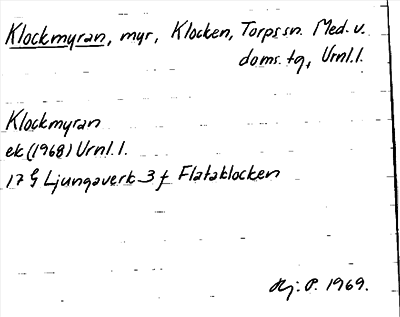 Klockmyran, myr, Klocken, Torps sn. Med. v.
doms. tg, Urnl. l.
Klockmyran
ek (1968) Urnl. l.
17 G Ljungaverk 3 f Flataklocken
Hj. P. 1969.